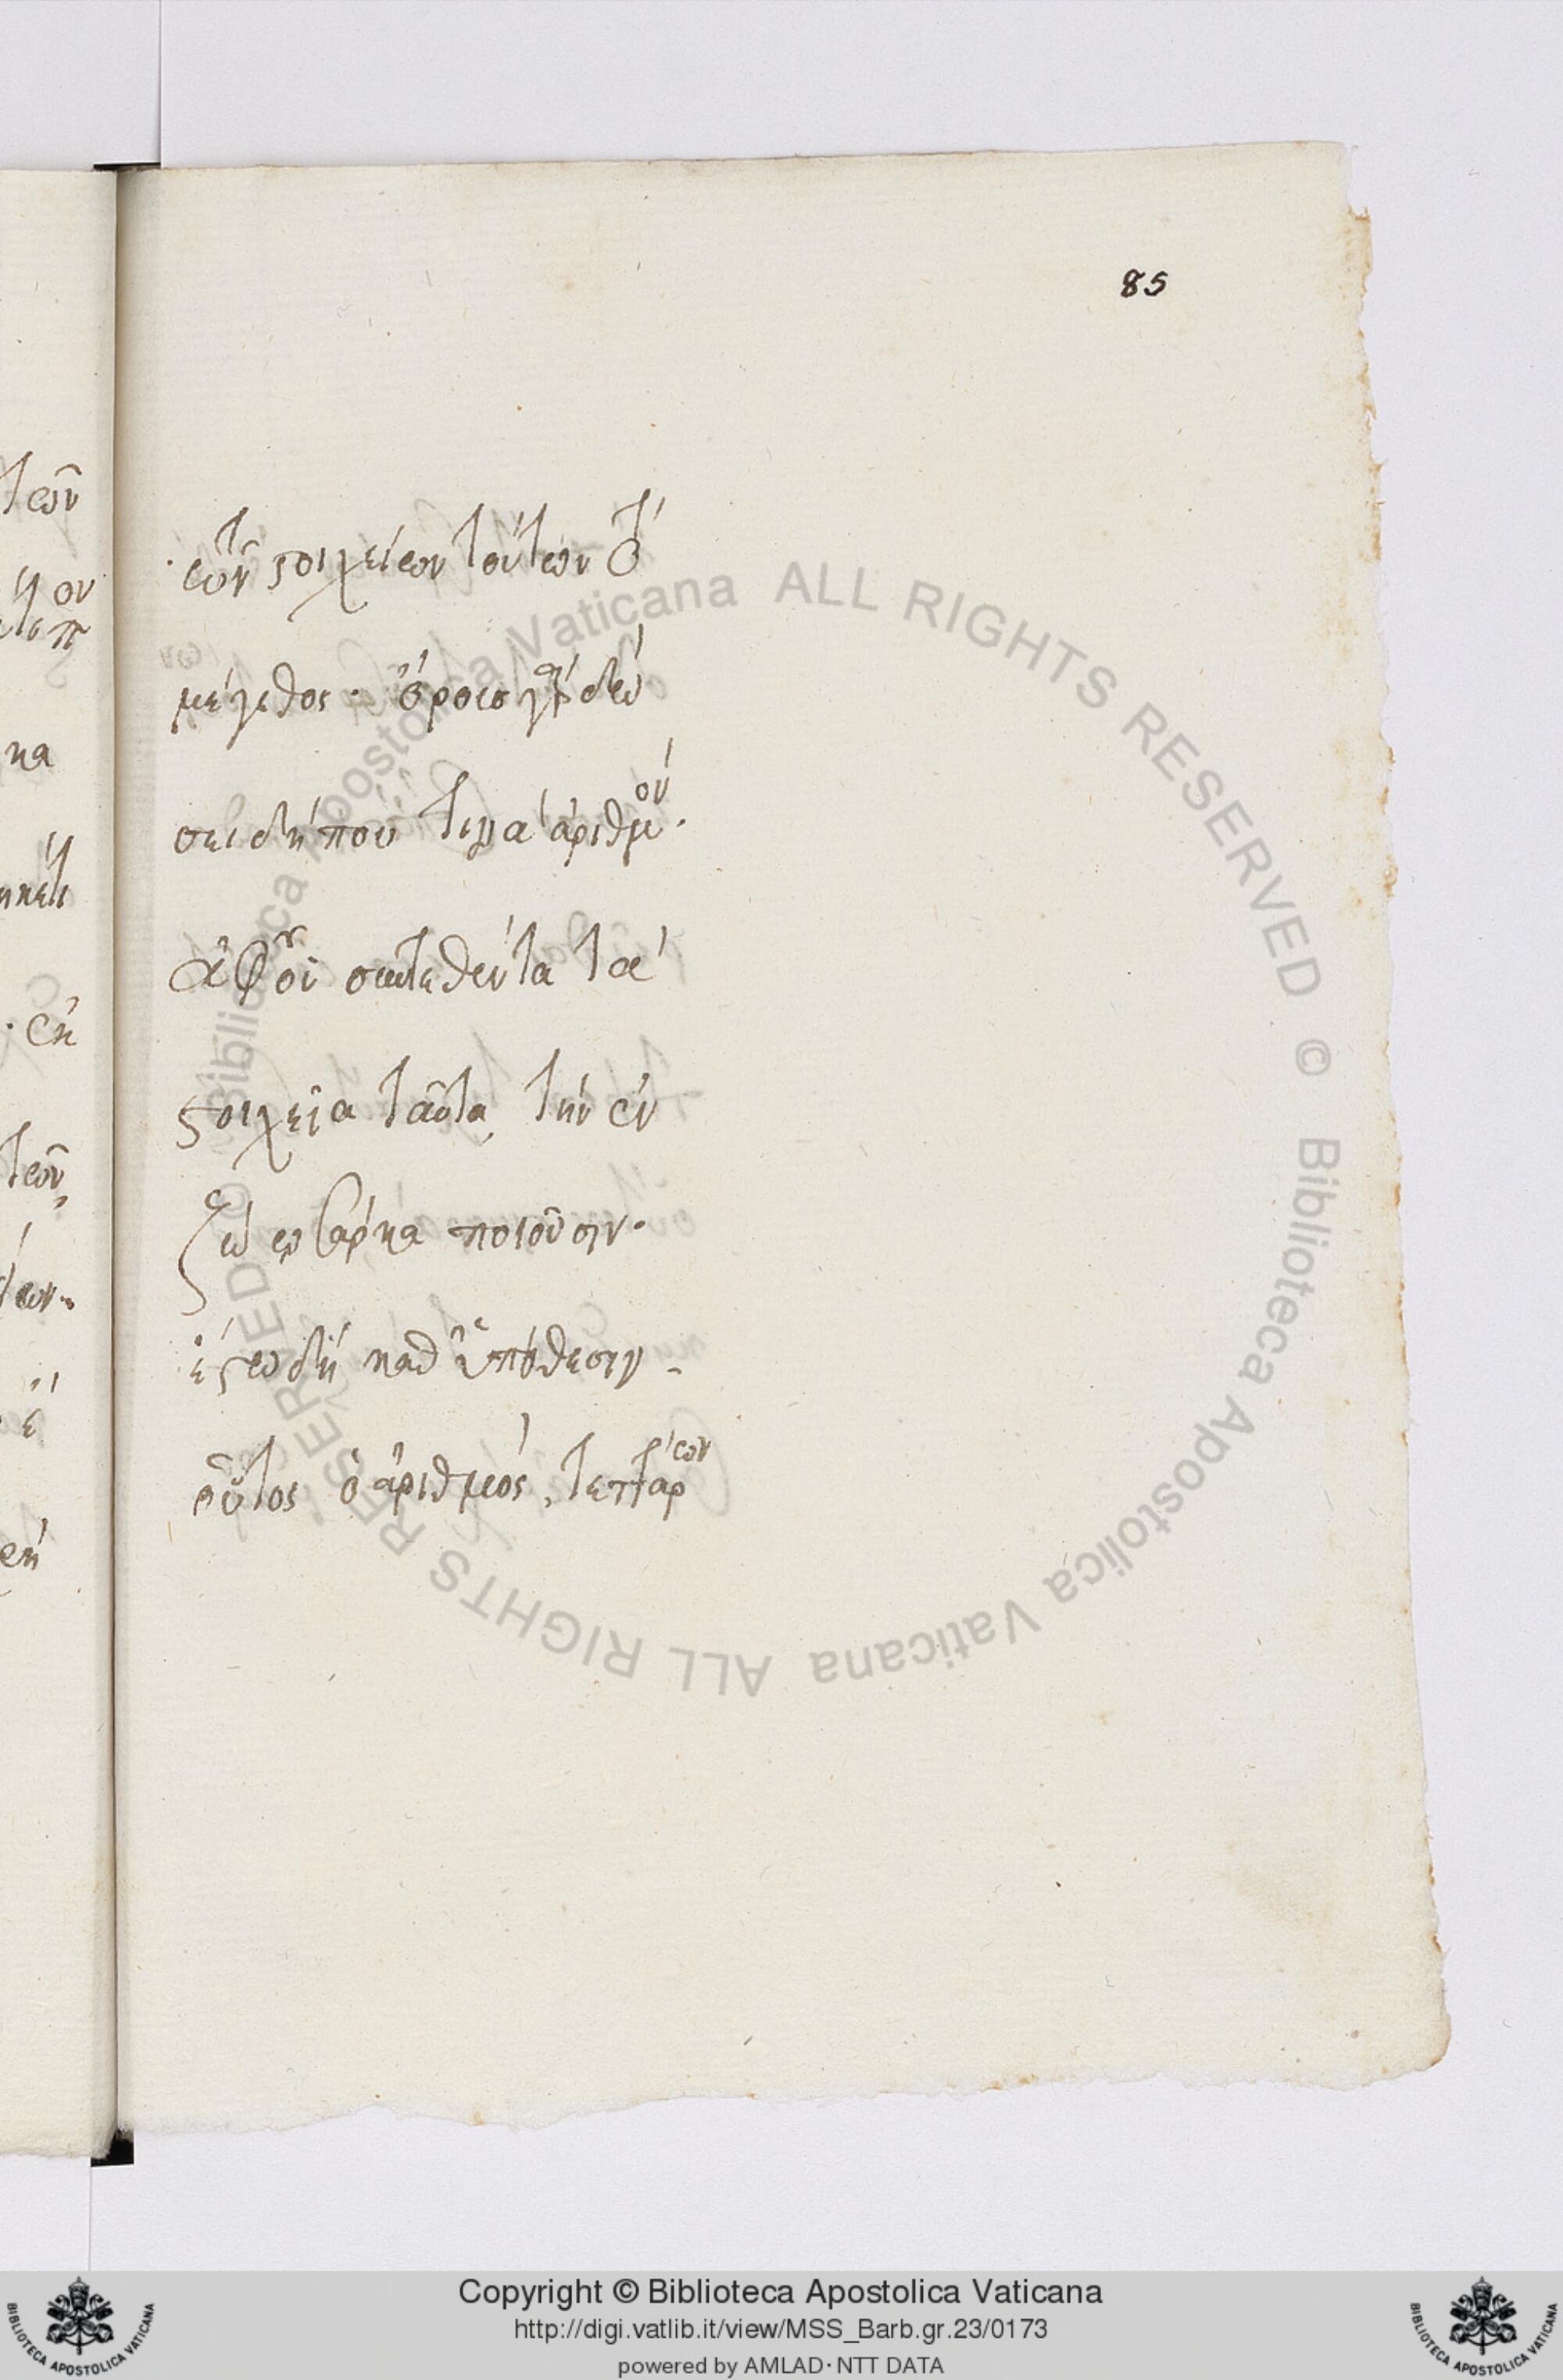 85
τῶν στοιχείων τούτων τὸ
μέγεθος. ὁρίσωμεν δὲ
δήπου τινα ἀριθμὸν.
ἀφ οὗ συντεθέντα τὰ
στοιχεῖα ταῦτα, τὴν ἐν
ζώω σάρκα ποιοῦσιν.
ἔστω δὴ καθ ὑπόθεσιν
οὗτος ὁ ἀριθμὸς, τεττάρων
ALL RIGHTS RESERVED © Biblioteca Apostolica Vaticana ALL RIGHTS RESERVED © Biblioteca Apostolica Vaticana
Copyright © Biblioteca Apostolica Vaticana
http://digi.vatlib.it/view/MSS_Barb.gr.23/0173
powered by AMLAD·NTT DATA
BIBLIOTECA APOSTOLICA VATICANA
BIBLIOTECA APOSTOLICA VATICANA